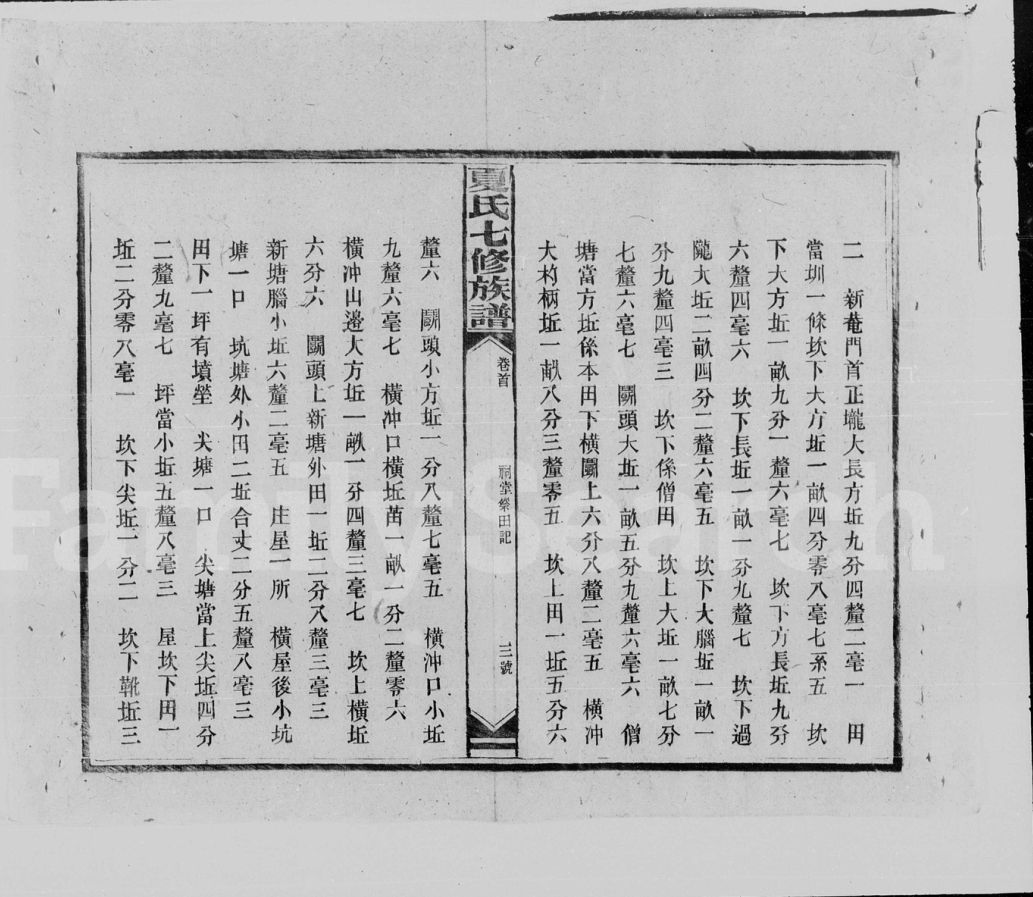 二　新菴門首正壠大長方坵九分四釐二毫一　田
當圳一條坎下大方坵一畝四分零八毫七系五　坎
下大方坵一畝九分一釐六毫七　坎下方長坵九分
六釐四毫六　坎下長坵一畝一分九釐七　坎下過
隴大坵二畝四分二釐六毫五　坎下大腦坵一畝一
分九釐四毫三　坎下係僧田　坎上大坵一畝七分
七釐六毫七　關頭大坵一畝五分九釐六毫六　僧
塘當方坵係本田下橫關上六分八釐二毫五　橫冲
大杓柄坵一畝八分三釐零五　坎上田一坵五分六
夏氏七修族譜
卷首
祠堂祭田記
三號
釐六　關頭小方坵一分八釐七毫五　橫沖口小坵
九釐六毫七　橫冲口橫坵苗一畝一分二釐零六
橫冲山邊大方坵一畝一分四釐三毫七　坎上橫坵
六分六　關頭上新塘外田一坵二分八釐三毫三
新塘腦小坵六釐二毫五　庄屋一所　橫屋後小坑
塘一口　坑塘外小田二坵合丈二分五釐八毫三
田下一坪有墳塋　尖塘一口　尖塘當上尖坵四分
二釐九毫七　坪當小坵五釐八毫三　屋坎下田一
坵二分零八毫一　坎下尖坵一分二　坎下靴坵三
FamilySearch